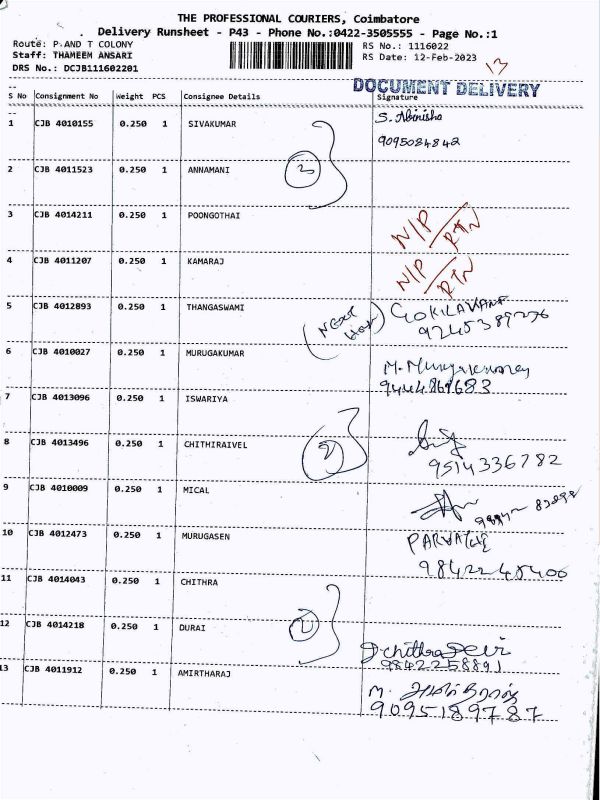 THE PROFESSIONAL COURIERS, Coimbatore
Delivery Runsheet - P43 - Phone No.:0422-3505555 - Page No.:1
Route: P AND T COLONY
RS No.: 1116022
Staff: THAMEEM ANSARI
RS Date: 12-Feb-2023
DRS No.: DCJB111602201
13
DOCUMENT DELIVERY
S No Consignment No Weight PCS Consignee Details Signature
1 CJB 4010155 0.250 1 SIVAKUMAR S. Abinisha
9095084842
2 CJB 4011523 0.250 1 ANNAMANI
3
3 CJB 4014211 0.250 1 POONGOTHAI N/P RTN
4 CJB 4011207 0.250 1 KAMARAJ N/P RTN
5 CJB 4012893 0.250 1 THANGASWAMI (Next GOKILAVANI
6 CJB 4010027 0.250 1 MURUGAKUMAR M. Murugakumar
9444869683
7 CJB 4013096 0.250 1 ISWARIYA
8 CJB 4013496 0.250 1 CHITHIRAIVEL
9514336782
9 CJB 4010009 0.250 1 MICAL
10 CJB 4012473 0.250 1 MURUGASEN
11 CJB 4014043 0.250 1 CHITHRA
12 CJB 4014218 0.250 1 DURAI D chithra Devi
9842258891
13 CJB 4011912 0.250 1 AMIRTHARAJ M.
9095189787